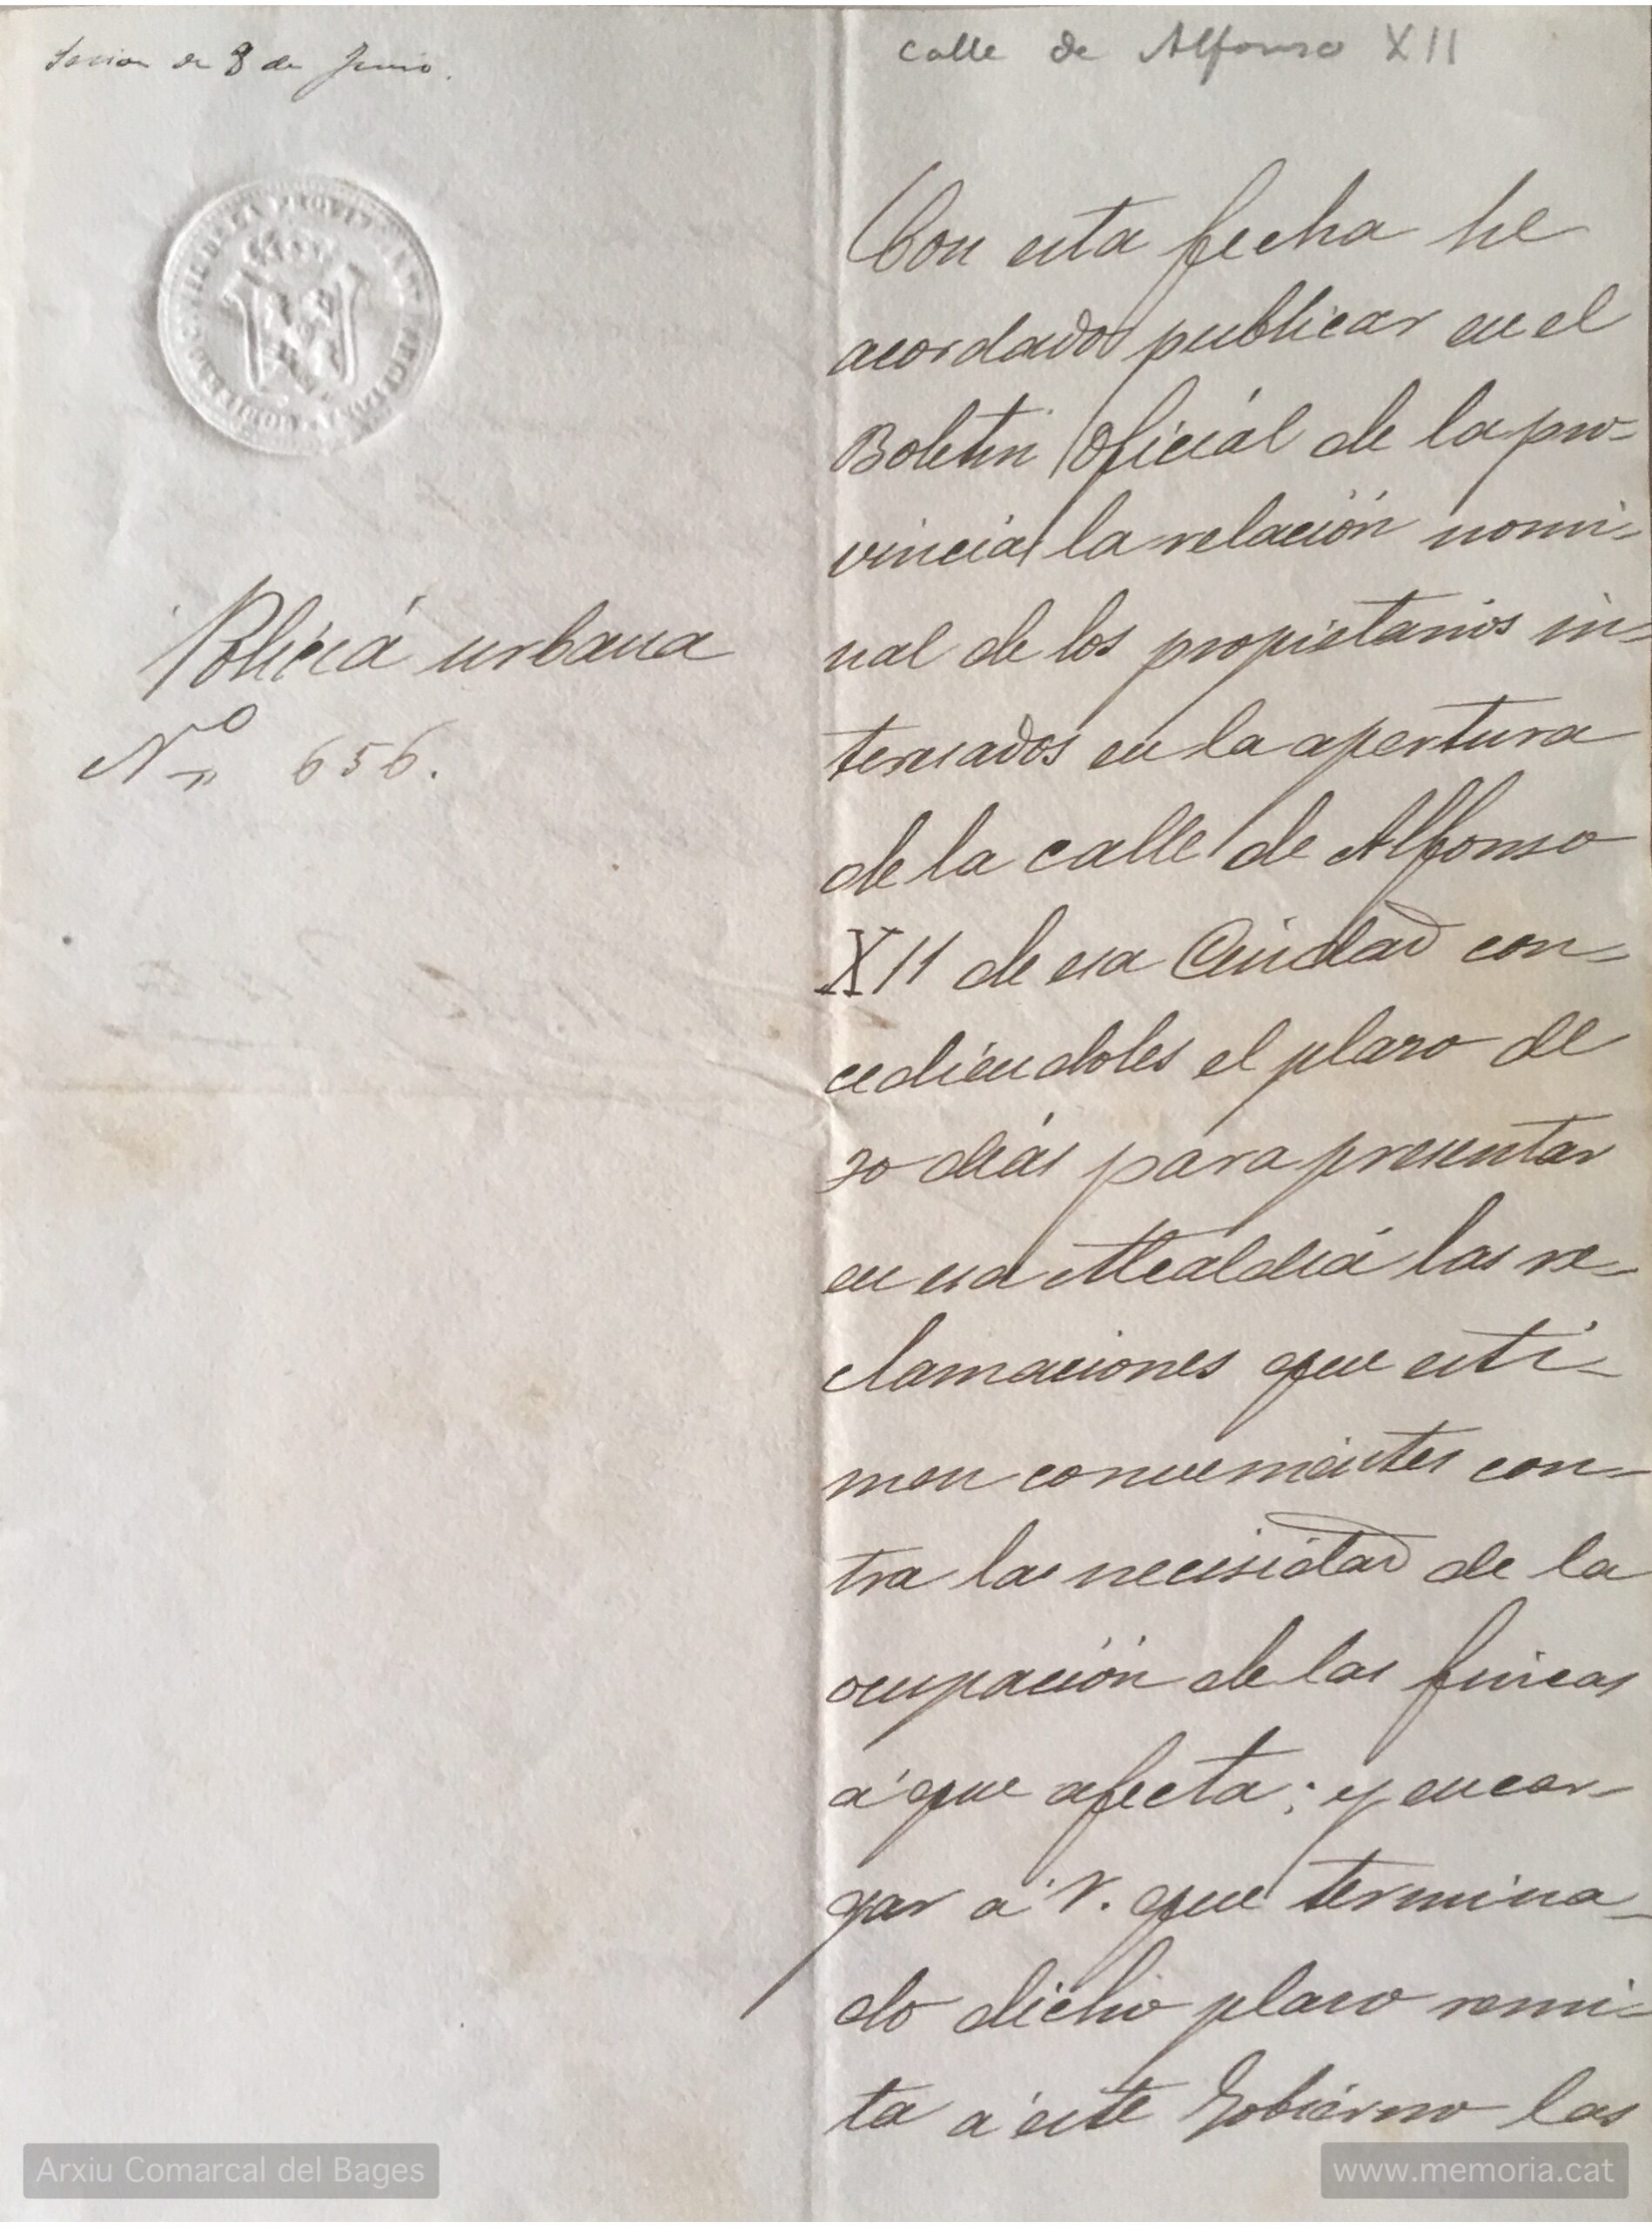 Sesion de 8 de Junio.
calle de Alfonso XII
GOBIERNO CIVIL DE LA PROVINCIA DE BARCELONA
Policiá urbana
Nº 656.
Con esta fecha he
acordado publicar en el
Boletin Oficial de la pro-
vincia la relación nomi-
nal de los propietarios in-
teresados en la apertura
de la calle de Alfonso
XII de esa Ciudad con-
cediéndoles el plazo de
20 diás para presentar
en esa Alcaldiá las re-
clamaciones que esti-
men convenientes con-
tra la necesidad de la
ocupación de las fincas
á que afecta; y encar-
gar á V. que termina-
do dicho plazo remi-
ta á este Gobierno las
Arxiu Comarcal del Bages
www.memoria.cat